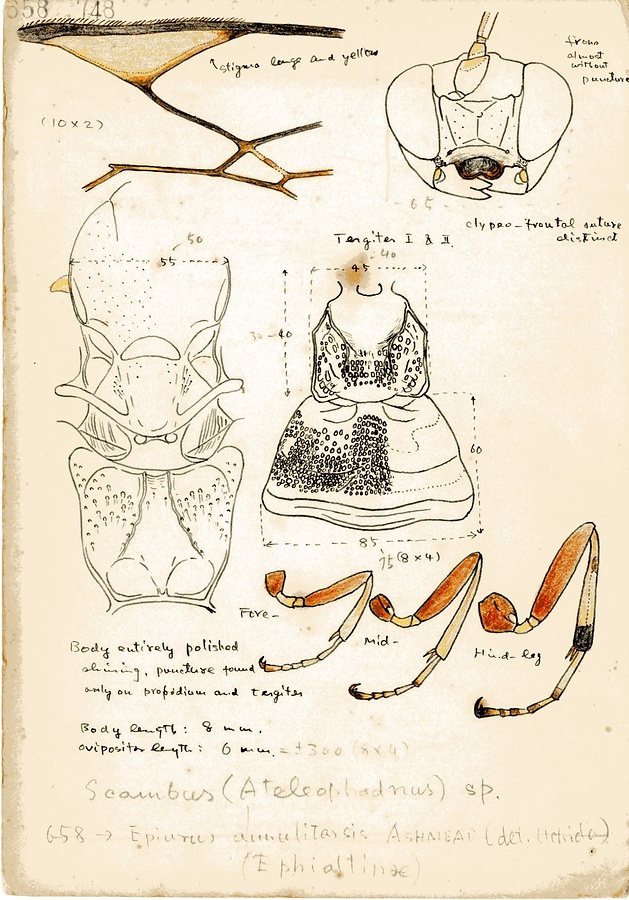 658 748
stigma large and yellow
(10 x 2)
frons
almost
without
puncture
65
clypeo-frontal suture
distinct
50
55
Tergites I & II
40
45
30 - 40
60
85
75 (8 x 4)
Fore-
Mid-
Hind-leg
Body entirely polished
shining, puncture found
only on propodium and tergites
Body length: 8 mm.
ovipositor length: 6 mm. = ±300 (8x4)
Scambus (Ateleophadnus) sp.
658 → Epiurus annulitarsis ASHMEAD (det. Uchida)
(Ephialtinae)